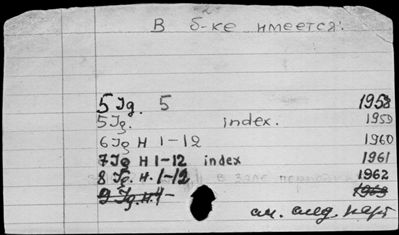 В б-ке имеется:
5 Jg. 5 1958
5 Jg. index. 1959
6 Jg H 1-12 1960
7 Jg H 1-12 index 1961
8 Jg. H. 1-12 1962
9 Jg. H. 1963
см. след. карт